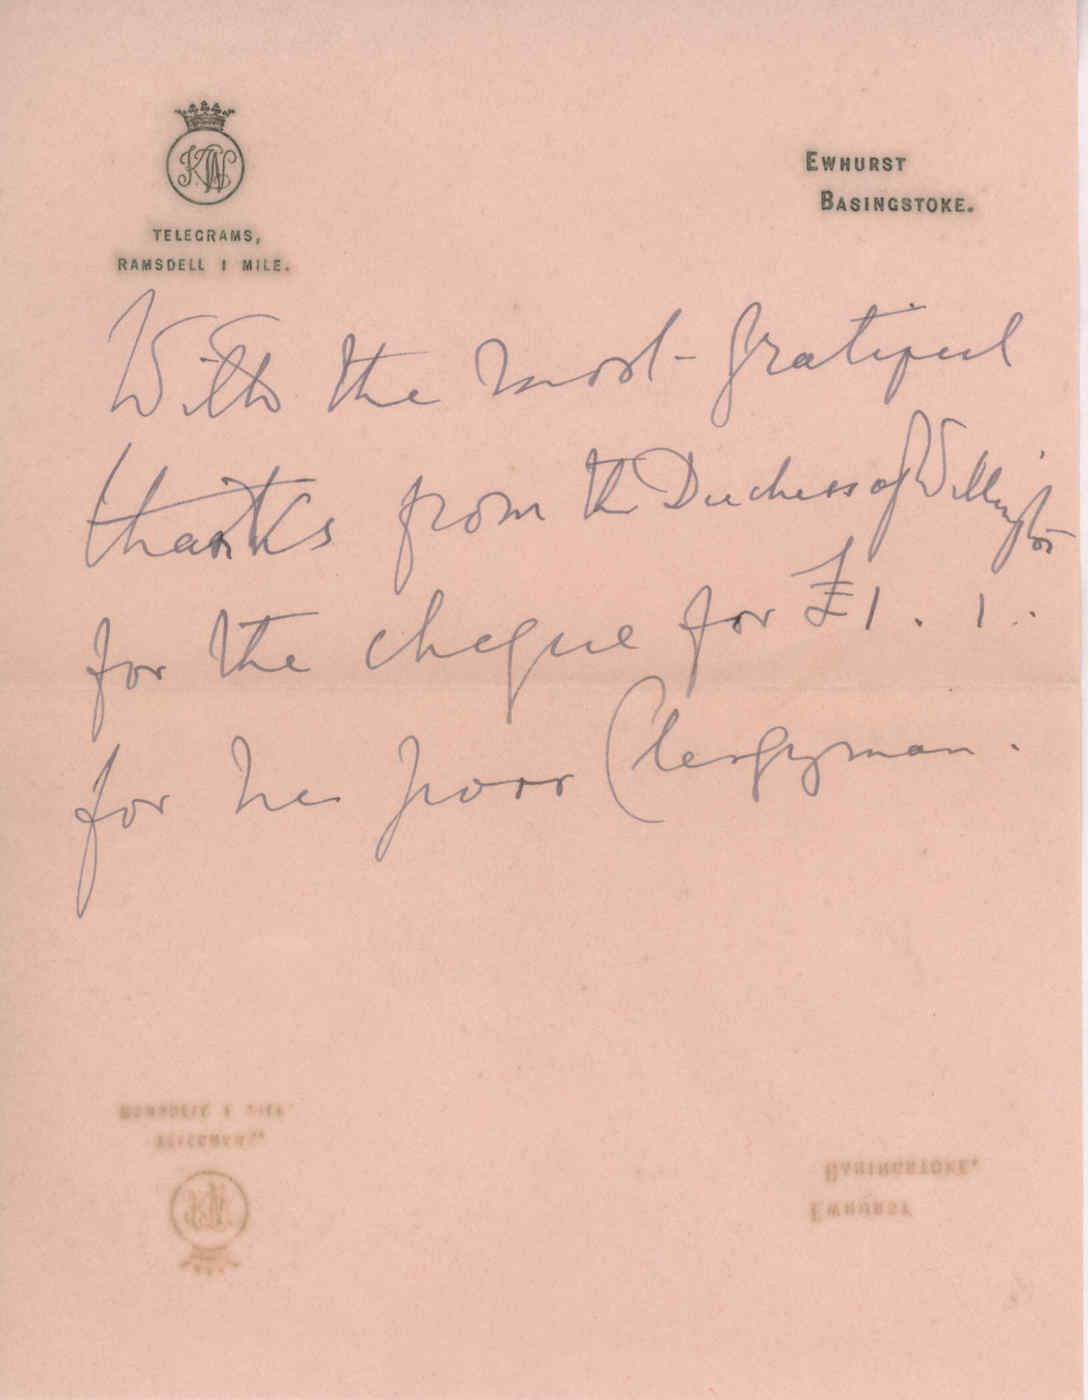 KW
EWHURST
BASINGSTOKE.
TELEGRAMS,
RAMSDELL 1 MILE.
With the most gratiful
thanks from the Duchess of Wellington
for the cheque for £1 . 1 ..
for her poor Clergyman .
BASINGSTOKE.
EWHURST